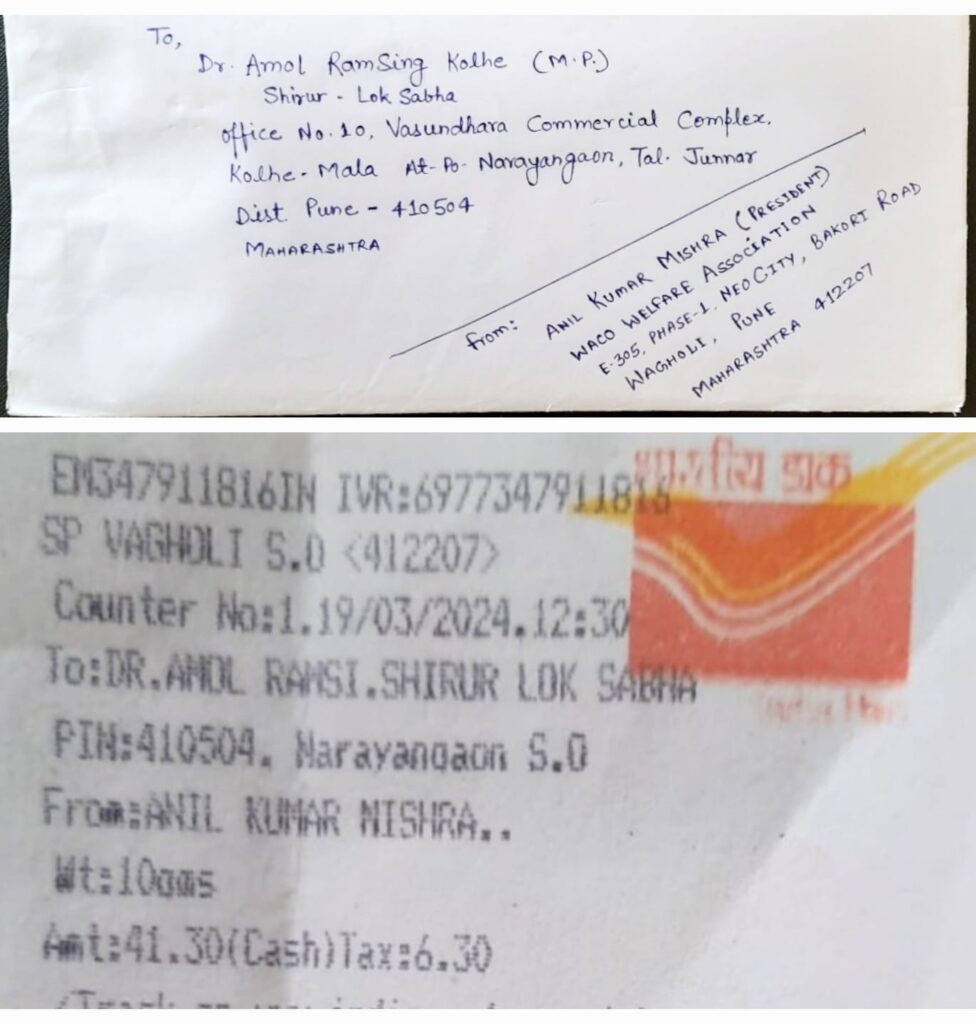 To,
Dr. Amol RamSing Kolhe (M.P.)
Shirur - Lok Sabha
office No. 10, Vasundhara Commercial Complex,
Kolhe - Mala At- Po- Narayangaon, Tal. Junnar
Dist. Pune - 410504
MAHARASHTRA
from: ANIL KUMAR MISHRA (PRESIDENT)
WACO WELFARE ASSOCIATION
E-305, PHASE-1, NEO CITY, BAKORI ROAD
WAGHOLI, PUNE
MAHARASHTRA 412207
भारतीय डाक
EM347911816IN IVR:6977347911816
SP VAGHOLI S.O <412207>
Counter No:1,19/03/2024,12:30
To:DR.AMOL RAMSI,SHIRUR LOK SABHA
PIN:410504, Narayangaon S.O
From:ANIL KUMAR MISHRA..
Wt:10gms
Amt:41.30(Cash)Tax:6.30